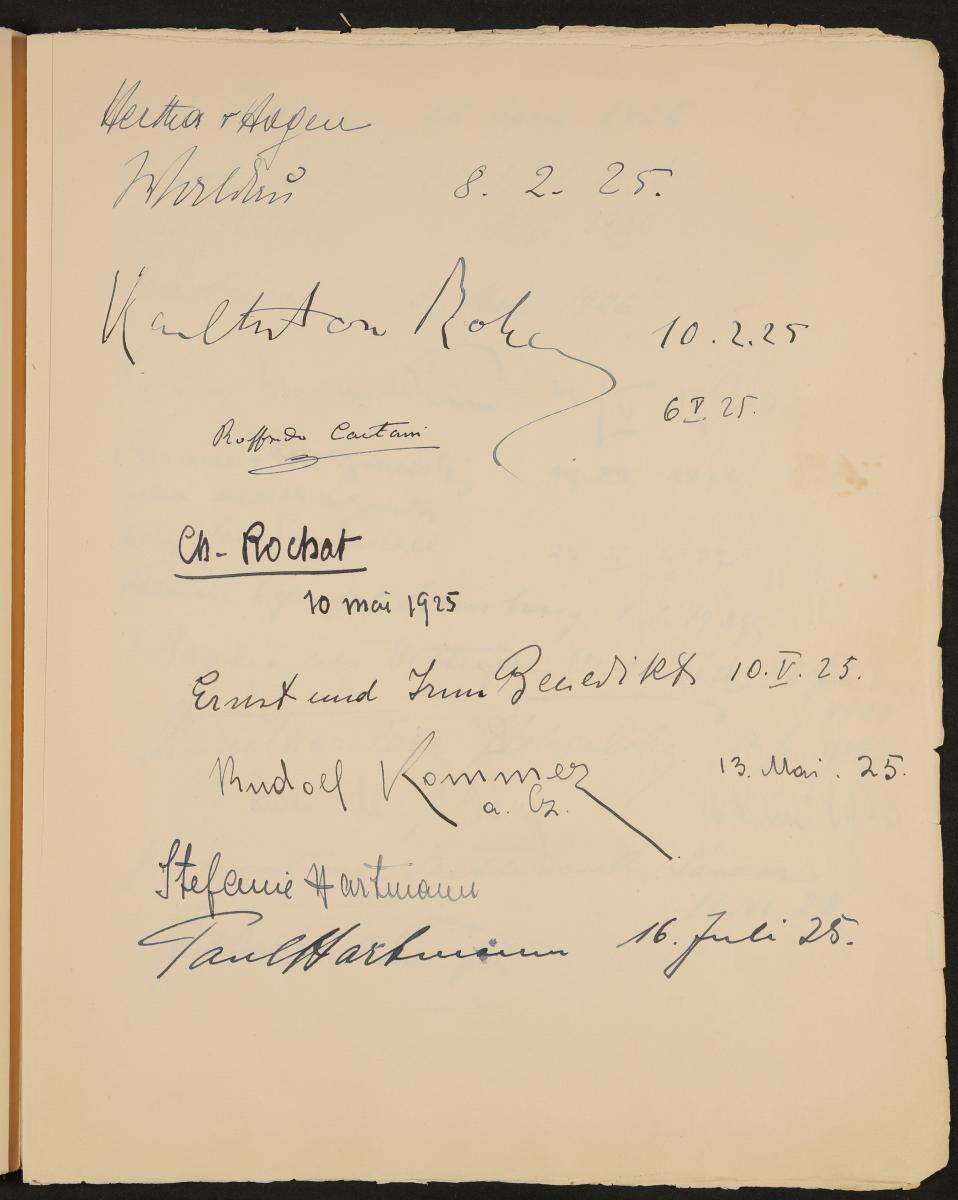 Hertha v Hagen
Waldau 8. 2. 25.
Karl Anton Rohan 10.2.25
6 V. 25.
Roffredo Caetani
Ch- Rochat
10 mai 1925
Ernst und Irma Benedikt 10.V.25.
Rudolf Kommer 13. Mai. 25.
a. Cz.
Stefanie Hartmann
Paul Hartmann 16. Juli 25.